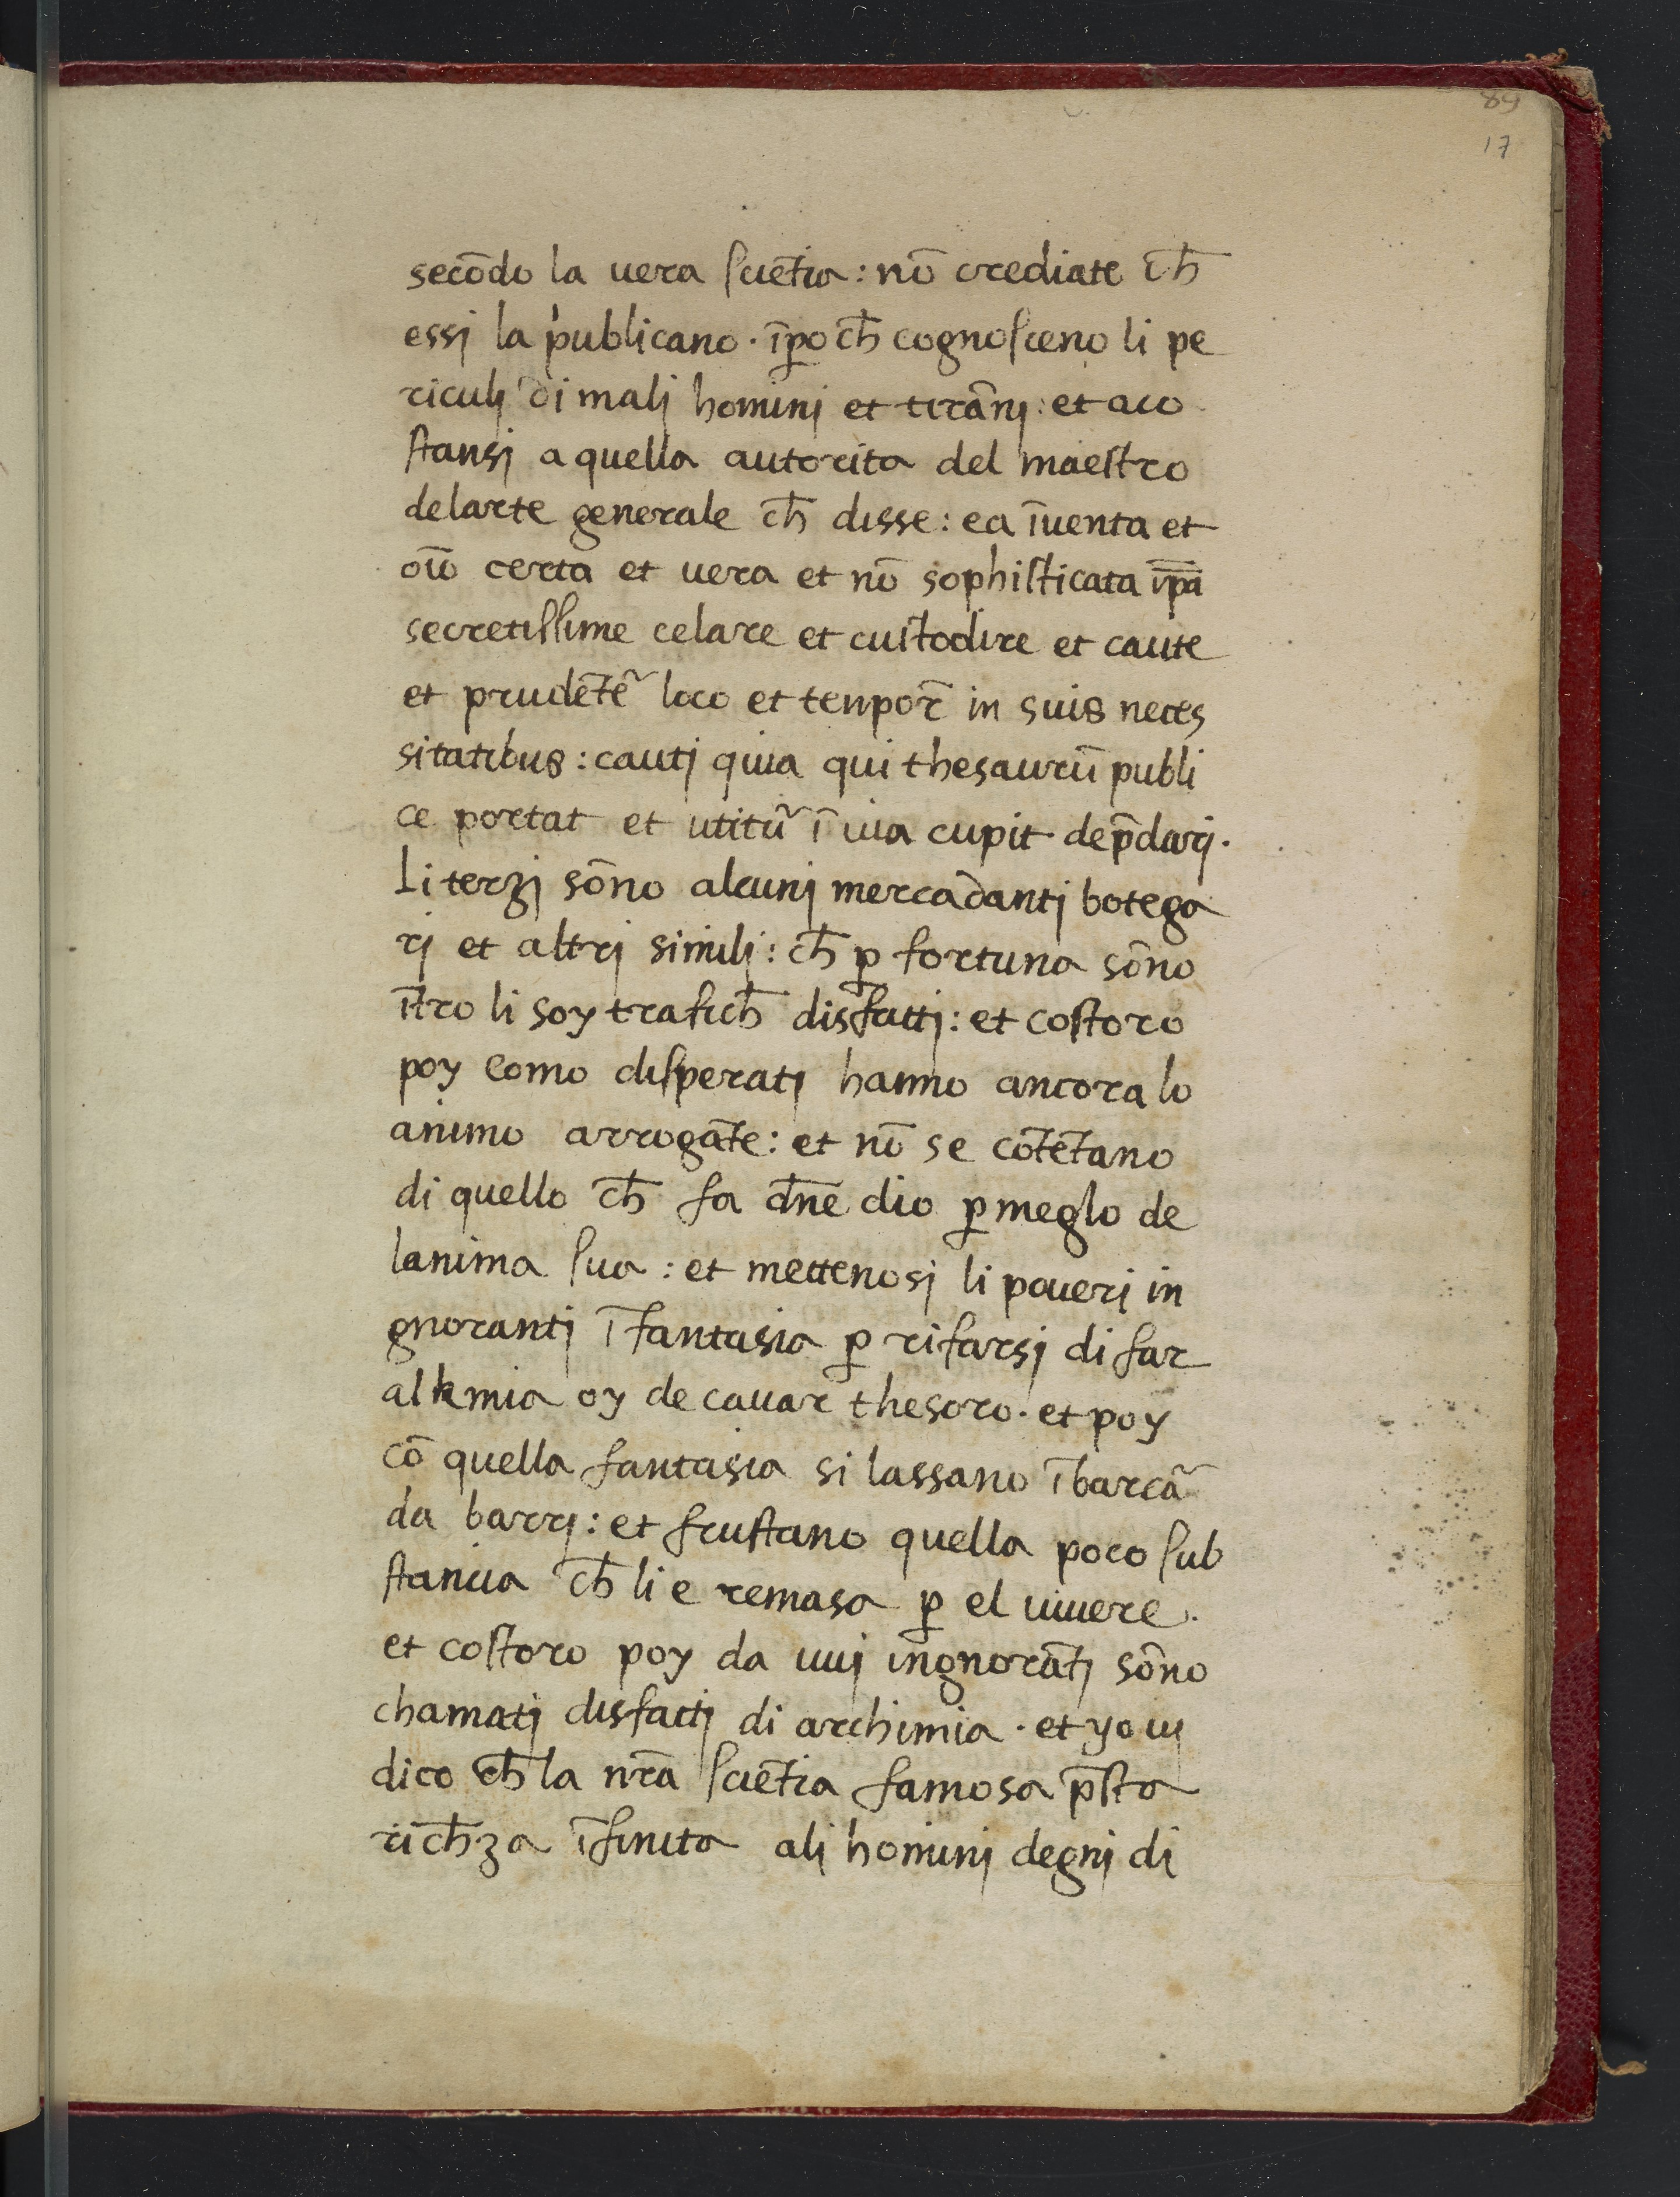 89
17
secōdo la uera ſciētia: nō crediate ch̄
essj la publicano · īp̱och̄ cognoſceno li pe
riculj di malj hominj et tirānj: et aco
ſtansj a quella autorita del maeſtro
delarte generale ch̄ disse: ea īuenta et
oīo certa et uera et nō sophiſticata ip̄a
secretiſſime celare et cuſtodire et caute
et prudētē loco et tenpor̄ in suis neces
sitatibus: cautj quia qui thesaurū publi
ce portat et utitu᷉ ī uia cupit dep̄darj ·
Li terzj sōno alcunj mercadantj botega
rj et altrj similj: ch̄ p̱ fortuna sōno
ītro li soy trafich̄ disfattj: et coſtoro
poy como diſperatj hanno ancora lo
animo arrogāte: et nō se cōtētano
di quello ch̄ fa dn̄e dio p̱ meglo de
lanima ſua: et mettenosj li poueri in
gnorantj ī fantasia p̱ rifarsj di far
alkmia oy de cauar thesoro · et poy
cō quella fantasia si lassano ībarca᷉
da barrj: et fruſtano quella poco ſub
ſtancia ch̄ li e remasa p̱ el uiuere ·
et coſtoro poy da uuj ingnorātj sōno
chamatj disfattj di archimia · et yo uj
dico ch̄ la nr̄a ſciētia famosa p̄ſta
rich̄za īfinita alj hominj degnj di